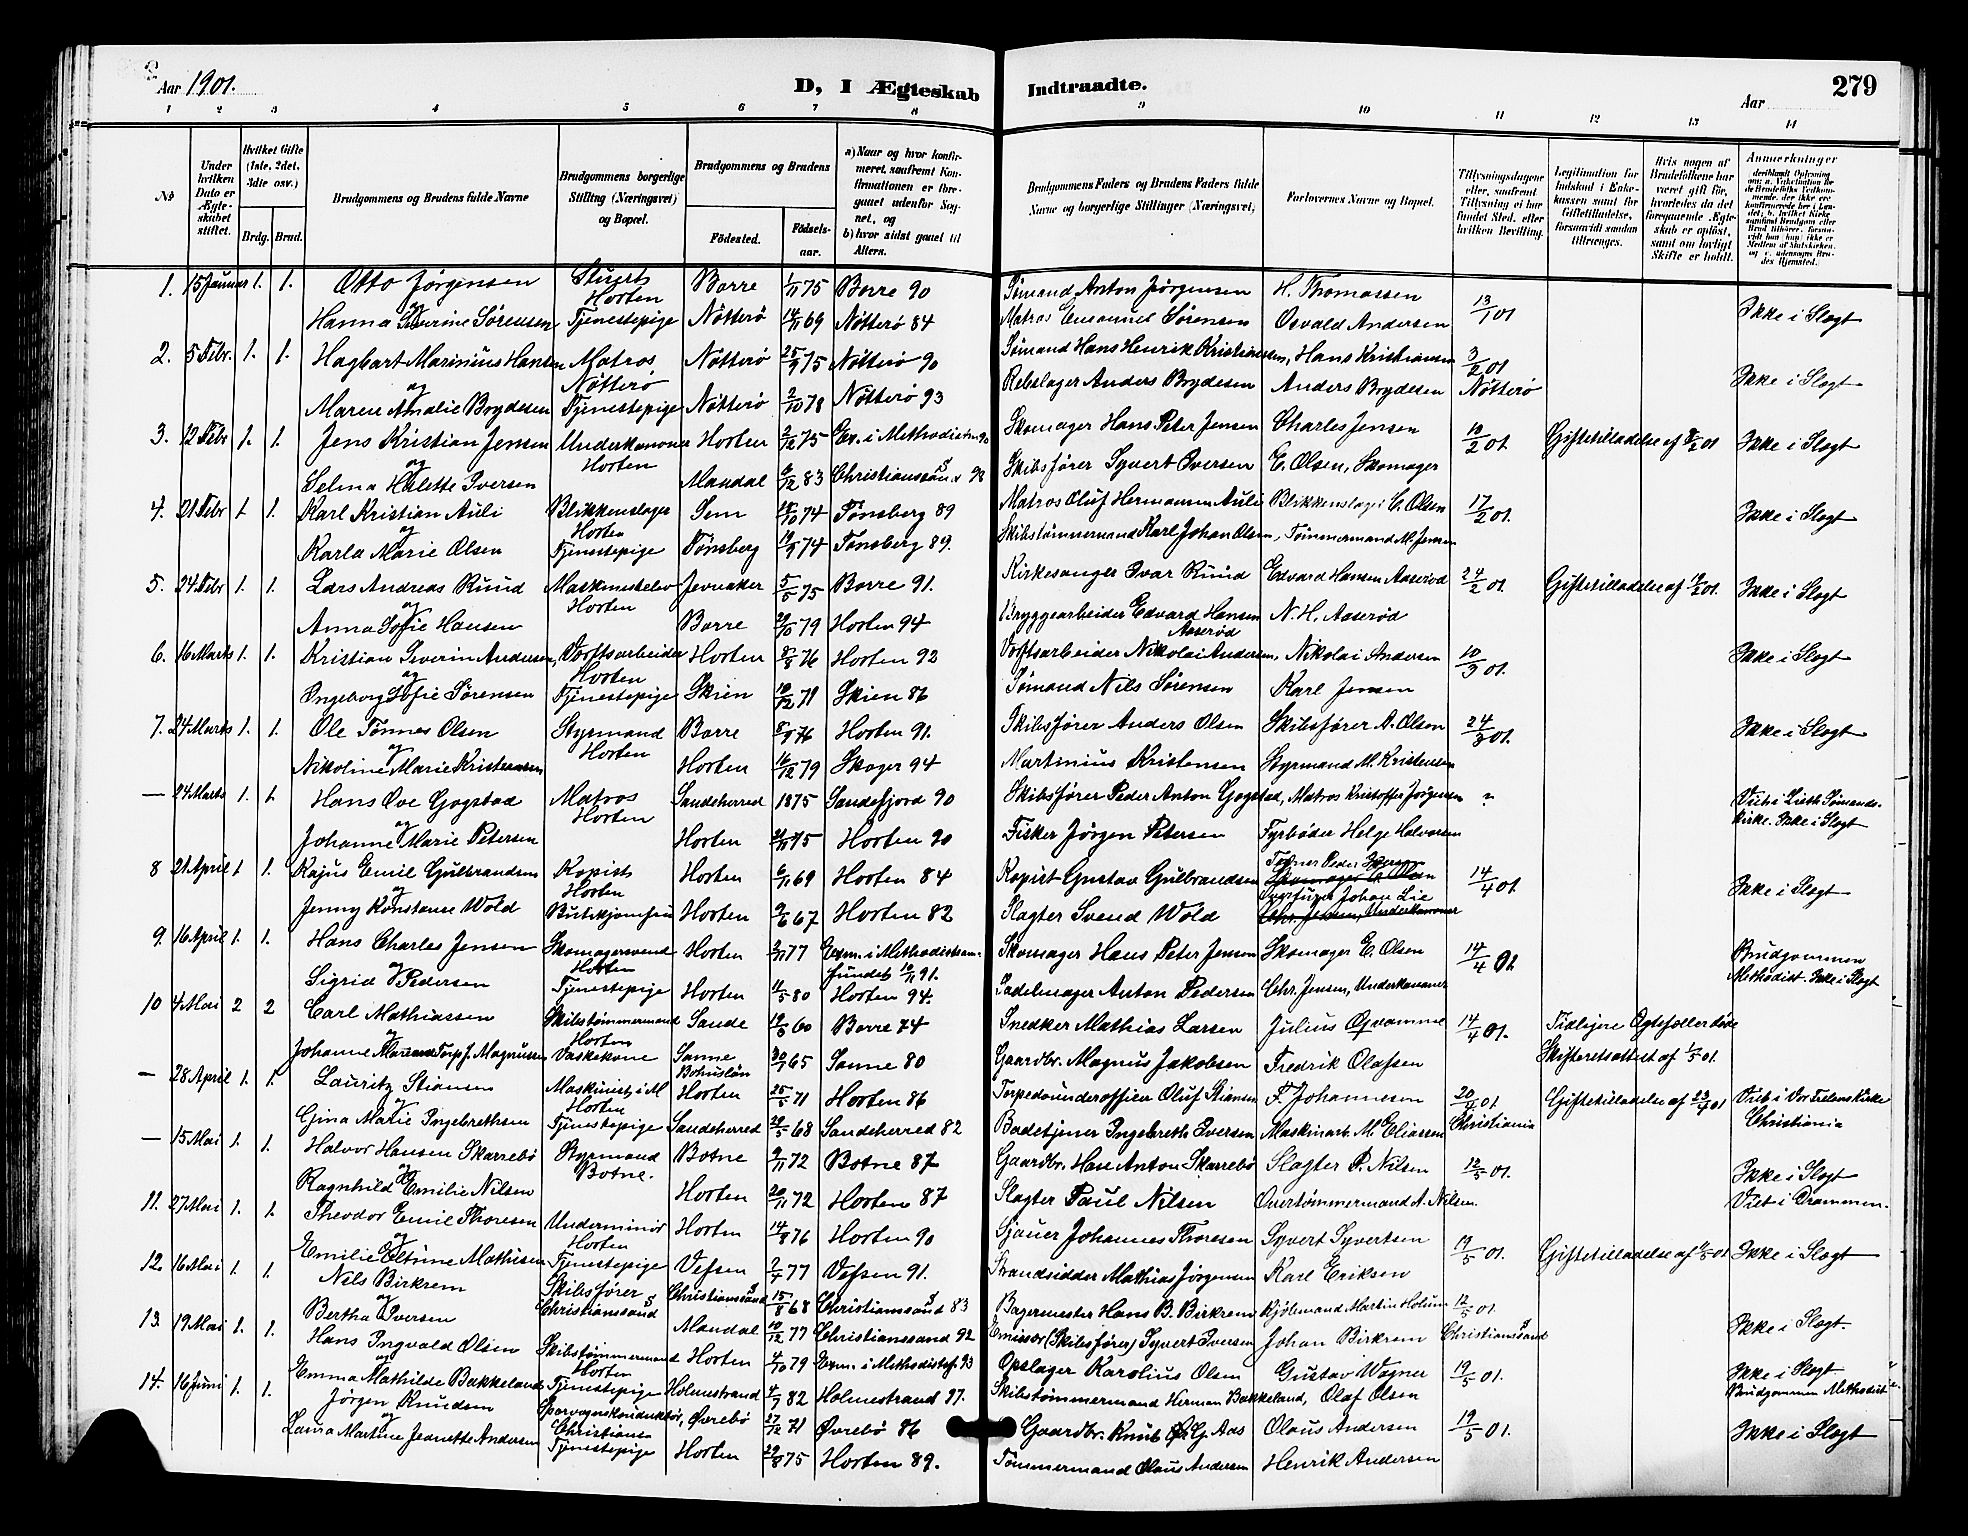 Aar 1901.
D, I Ægteskab
Indtraadte.
Aar
279
1 2 3 4 5 6 7 8 9 10 11 12 13 14
No
Under hvilken Dato er Ægteskabet stiftet.
Hvilket Gifte (1ste, 2det, 3die osv.)
Brdg. Brud.
Brudgommens og Brudens fulde Navne
Brudgommens borgerlige Stilling (Næringsvei) og Bopæl.
Brudgommens og Brudens
Fødested.
Fødsels-aar.
a) Naar og hvor konfirmeret, saafremt Konfirmationen er foregaaet udenfor Sognet, og
b) hvor sidst gaaet til Alters.
Brudgommens Faders og Brudens Faders fulde Navne og borgerlige Stillinger (Næringsvei)
Forlovernes Navne og Bopæl.
Tillysningsdagene eller, saafremt Tillysning ei har fundet Sted, efter hvilken Bevilling.
Legitimation for Indskud i Enkekassen samt for Giftetilladelse, forsaavidt saadan tiltrænges.
Hvis nogen af Brudefolkene har været gift før, hvorledes da det foregaaende Ægteskab er opløst, samt om lovligt Skifte er holdt.
Anmerkninger
1. 15 Januar 1. 1. Otto Jørgensen Horten Borre 1/11 75 Borre 90 Sømand Anton Jørgensen H. Thomassen 13/1 01
og
Hanna Severine Sørensen Tjenestepige Nøtterø 14/11 69 Nøtterø 84 Matros Emanuel Sørensen Osvald Andersen Ikke i Slægt
2. 5 Febr. 1. 1. Hagbart Marinius Hansen Matros Nøtterø Nøtterø 25/9 75 Nøtterø 90 Sømand Hans Henrik Kristiansen, Hans Kristiansen 3/2 01
og
Maren Amalie Brydesen Tjenestepige Nøtterø 2/10 78 Nøtterø 93 Rebslager Anders Brydesen Anders Brydesen Nøtterø Ikke i Slægt
3. 12 Febr 1. 1. Jens Kristian Jensen Underkanoner Horten Horten 2/12 75 Ex. i Methodistm 90 Skomager Hans Peter Jensen Charles Jensen 10/2 01 Giftetilladelse af 01 Ikke i Slægt
og
Selma Halette Iversen Mandal 6/12 83 Christianssand 98 Skibsfører Syvert Iversen E. Olsen, Skomager
4. 21 Febr 1 1. Karl Kristian Auli Blikkenslager Horten Sem 74 Tønsberg 89 Matros Oluf Hermansen Auli Blikkenslager C. Olsen 17/2 01. Ikke i Slægt
og
Karla Marie Olsen Tjenestepige Tønsberg 74 Tønsberg 89. Skibstømmermand Karl Johan Olsen, Tømmermand M. Jensen
5. 24 Febr 1. 1. Lars Andreas Ruud Maskinistelev Horten Jevnaker 5/5 75 Borre 91. Kirkesanger Ivar Ruud Edvard Hansen Aaserød 24/2 01. Giftetilladelse af 01. Ikke i Slægt
og
Anna Sofie Hansen Borre 79 Horten 94 Bryggearbeider Edvard Hansen Aaserød N. H. Aaserød
6. 16 Marts 1. 1. Kristian Severin Andersen, Værftsarbeider Horten Horten 76 Horten 92 Værftsarbeider Nikolai Andersen, Nikolai Andersen 10/3 01. Ikke i Slægt
og
Ingeborg Sofie Sørensen Tjenestepige Skien 10/12 71 Skien 86 Sømand Nils Sørensen Karl Jensen
7. 24 Marts 1. 1. Ole Tønnes Olsen Styrmand Horten Borre 8/9 76 Horten 91. Skibsfører Anders Olsen Skibsfører A. Olsen 24/3 01. Ikke i Slægt
og
Nikoline Marie Kristensen Horten 16/12 79 Skoger 94 Martinius Kristensen Styrmand M. Kristensen
— 24 Marts 1. 1. Hans Ove Gogstad Matros Horten Sandeherred 1875 Sandefjord 90 Skibsfører Peder Anton Gogstad, Matros Kristoffer Jørgensen " Viet i Leith Sømandskirke. Ikke i Slægt
og
Johanne Marie Petersen Horten 75 Horten 90 Fisker Jørgen Petersen Fyrbøder Helge Halvorsen
8 21 April 1 1. Kajus Emil Gulbrandsen Kopist Horten Horten 6/11 69 Horten 84 Kopist Gustav Gulbrandsen Skomager E. Olsen Johan Lie 14/4 01. Ikke i Slægt
og
Jenny Konstanse Wold Horten 9/6 67 Horten 82 Slagter Svend Wold Chr. Jensen, Underkanoner
9. 16 April 1. 1. Hans Charles Jensen Skomagersvend Horten Horten 2/11 77 Exm. i Methodistsamfundet 91. Skomager Hans Peter Jensen Skomager E. Olsen 14/4 01 Brudgommen Methodist. Ikke i Slægt
og
Sigrid Pedersen Tjenestepige Horten 11/5 80 Horten 94. Sadelmager Anton Pedersen Chr. Jensen, Underkanoner
10 4 Mai 2 2 Carl Mathiassen Skibstømmermand Horten Sande 60 Borre 74 Snedker Mathias Larsen Julius Opvamme 14/4 01. Tidligere Ægtefæller døde Skifteretsattest af 1/5 01.
og
Johanne Marianne Torp f. Magnussen Vaskekone Sanne Bohuslän 65 Sanne 80 Gaardbr. Magnus Jakobsen Fredrik Olafsen
— 28 April 1. 1. Lauritz Stiansen Maskinist i M. Horten Horten 25/5 71 Horten 86 Torpedounderofficer Oluf Stiansen F. Johannesen 20/4 01. Christiania Giftetilladelse af 23/4 01 Viet i Vor Frelsers Kirke Christiania
og
Gina Marie Ingebrethsen Tjenestepige Sandeherred 68 Sandeherred 82 Badetjener Ingebreth Iversen Maskinarb. M. Eliassen
— 15 Mai 1. 1. Halvor Hansen Skarrebø Styrmand Botne. Botne 9/11 72 Botne 87 Gaardbr. Hans Anton Skarrebø Slagter P. Nilsen 12/5 01. Ikke i Slægt
og
Ragnhild Emilie Nilsen Horten 20/11 72 Horten 87 Slagter Paul Nilsen Overtømmermand A. Nilsen. Viet i Drammen.
11. 27 Mai 1. 1. Theodor Emil Thoresen Underminør Horten Horten 14/8 76 Horten 90 Sjauer Johannes Thoresen Syvert Syvertsen 19/5 01. Giftetilladelse af 01 Ikke i Slægt
og
Emilie Eltrine Mathisen Tjenestepige Vefsen 2/4 77 Vefsen 91. Strandsidder Mathias Jørgensen Karl Eriksen
12. 16 Mai 1. 1. Nils Birkrem Skibsfører Christianssand Christianssand 15/8 68 Christianssand 83 Bagermester Hans B. Birkrem Kjøbmand Martin Holum 12/5 01. Christianssand
og
Bertha Iversen Mandal 10/12 77 Christianssand 92 Emissær (Skibsfører) Syvert Iversen Johan Birkrem Ikke i Slægt.
13. 19 Mai 1. 1. Hans Ingvald Olsen Skibstømmermand Horten Horten 4/10 79 Exm. i Methodistsf. 93 Opslager Karolius Olsen Gustav Wagner 19/5 01. Ikke i Slægt Brudgommen Methodist
og
Emma Mathilde Bakkeland Tjenestepige Holmestrand 82 Holmestrand 97. Skibstømmermand Herman Bakkeland, Olaf Olsen
14. 16 Juni 1. 1. Jørgen Knudsen Sporvognskonduktør, Christiania Øvrebø 27/12 71 Øvrebø 86 Gaardbr. Knut G. Aas Olaus Andersen 19/5 01. Ikke i Slægt
og
Laura Martine Jeanette Andersen Tjenestepige Horten 29/8 75 Horten 89. Tømmermand Olaus Andersen Henrik Andersen